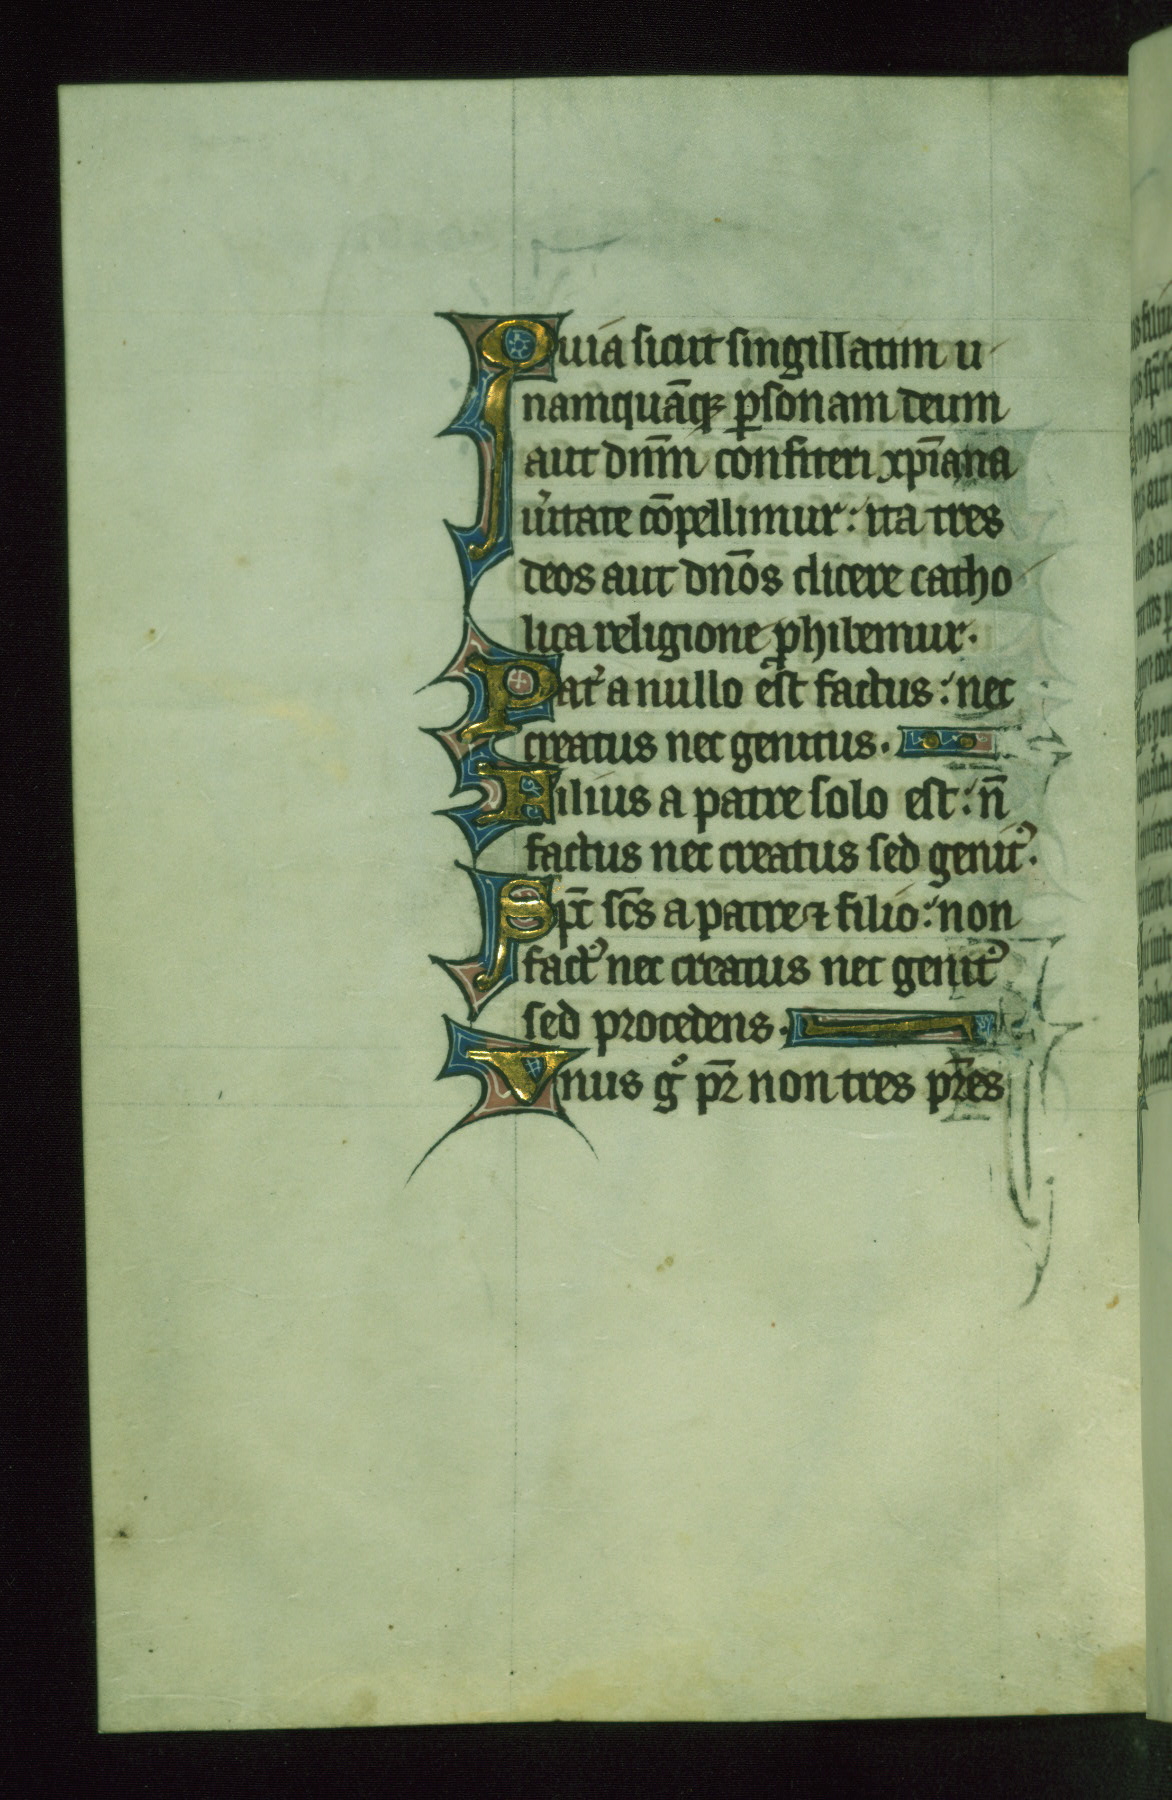 Quia sicut singillatim u
namquāq̄ꝫ ꝑsonam deum
aut dn̄m confiteri xp̄iana
u̾itate cōpellimur : ita tres
deos aut dn̄os dicere catho
lica religione ꝓhibemur.
Pat̾ a nullo est factus : nec
creatus nec genitus.
Filius a patre solo est : n̄
factus nec creatus sed genitꝰ.
Sp̄c sc̄s a patre ⁊ filio : non
factꝰ nec creatus nec genitꝰ
sed procedens.
Vnus gͦ pr̄ non tres pr̄es